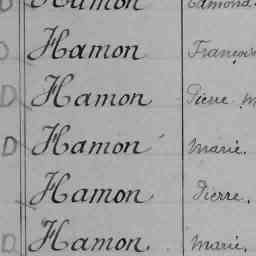 Hamon Edmond
D Hamon François
D Hamon Pierre M
D Hamon Marie.
Hamon Pierre.
D Hamon. Marie.